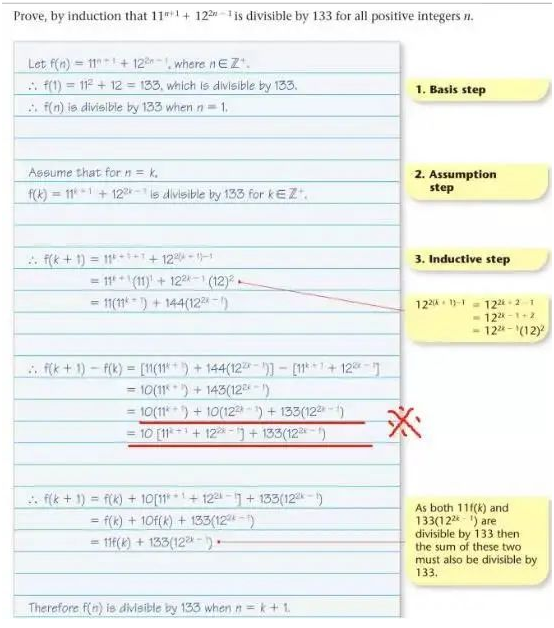 Prove, by induction that 11ⁿ⁺¹ + 12²ⁿ⁻¹ is divisible by 133 for all positive integers n.
Let f(n) = 11ⁿ⁺¹ + 12²ⁿ⁻¹, where n ∈ ℤ⁺.
∴ f(1) = 11² + 12 = 133, which is divisible by 133.
1. Basis step
∴ f(n) is divisible by 133 when n = 1.
Assume that for n = k,
2. Assumption
step
f(k) = 11ᵏ⁺¹ + 12²ᵏ⁻¹ is divisible by 133 for k ∈ ℤ⁺.
∴ f(k + 1) = 11ᵏ⁺¹⁺¹ + 12²⁽ᵏ⁺¹⁾⁻¹
3. Inductive step
= 11ᵏ⁺¹(11)¹ + 12²ᵏ⁻¹(12)²
= 11(11ᵏ⁺¹) + 144(12²ᵏ⁻¹)
12²⁽ᵏ⁺¹⁾⁻¹ = 12²ᵏ⁺²⁻¹
= 12²ᵏ⁻¹⁺²
= 12²ᵏ⁻¹(12)²
∴ f(k + 1) − f(k) = [11(11ᵏ⁺¹) + 144(12²ᵏ⁻¹)] − [11ᵏ⁺¹ + 12²ᵏ⁻¹]
= 10(11ᵏ⁺¹) + 143(12²ᵏ⁻¹)
= 10(11ᵏ⁺¹) + 10(12²ᵏ⁻¹) + 133(12²ᵏ⁻¹)
※
= 10 [11ᵏ⁺¹ + 12²ᵏ⁻¹] + 133(12²ᵏ⁻¹)
∴ f(k + 1) = f(k) + 10[11ᵏ⁺¹ + 12²ᵏ⁻¹] + 133(12²ᵏ⁻¹)
= f(k) + 10f(k) + 133(12²ᵏ⁻¹)
= 11f(k) + 133(12²ᵏ⁻¹)
As both 11f(k) and
133(12²ᵏ⁻¹) are
divisible by 133 then
the sum of these two
must also be divisible by
133.
Therefore f(n) is divisible by 133 when n = k + 1.